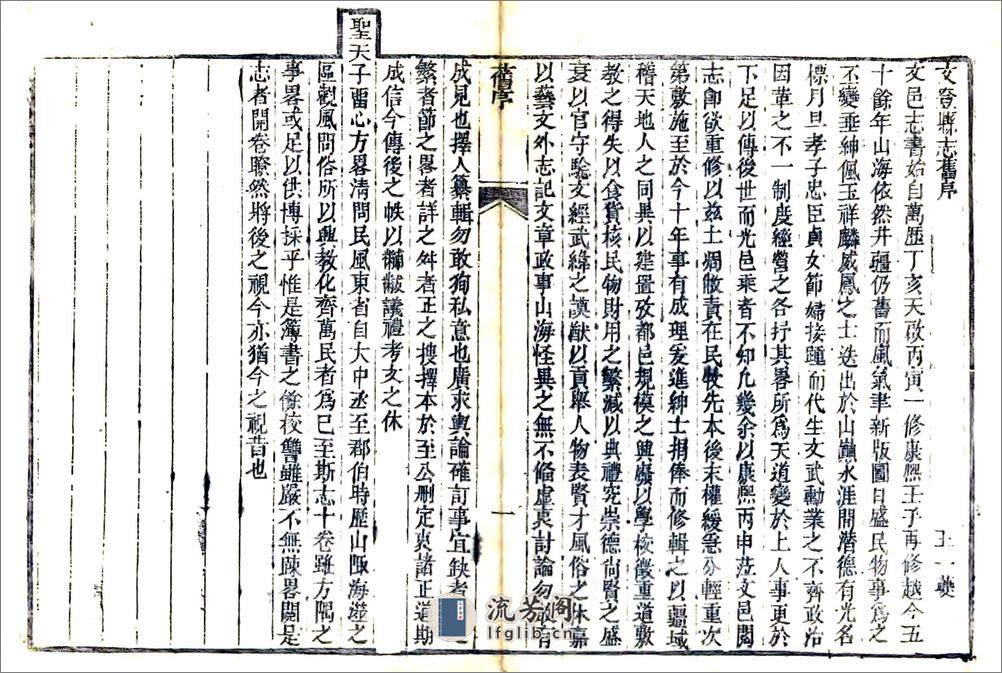 文登縣志舊序
王一夔
文邑志書始自萬歷丁亥天啟丙寅一修康熙壬子再修越今五
十餘年山海依然井疆仍舊而風氣聿新版圖日盛民物事為之
不變垂紳佩玉祥麟威鳳之士迭出於山巔水涯間潛德有光名
標月旦孝子忠臣貞女節婦接踵而代生文武勳業之不齊政治
因革之不一制度經營之各抒其畧所為天道變於上人事更於
下足以傳後世而光邑乘者不知凡幾余以康熙丙申蒞文邑閱
志卽欲重修以茲土凋敝責在民牧先本後末權緩急分輕重次
第敷施至於今十年事有成理爰進紳士捐俸而修輯之以疆域
稽天地人之同異以建置攷都邑規模之興廢以學校徵重道敷
教之得失以食貨核民物財用之繁減以典禮究崇德尚賢之盛
衰以官守驗文經武緯之謨猷以貢舉人物表賢才風俗之休嘉
以藝文外志記文章政事山海怪異之無不備虛衷討論勿敢有
舊序
一
成見也擇人纂輯勿敢狥私意也廣求輿論確訂事宜缺者
繁者節之畧者詳之舛者正之搜擇本於至公刪定衷諸正道期
成信今傳後之帙以黼黻議禮考文之休
聖天子畱心方畧清問民風東省自大中丞至郡伯時歷山陬海澨之
區觀風問俗所以興教化齊萬民者為已至斯志十卷雖方隅之
事畧或足以供博採乎惟是簿書之餘校讐雖嚴不無陳畧閱是
志者開卷瞭然將後之視今亦猶今之視昔也
流芳閣
lfglib.cn